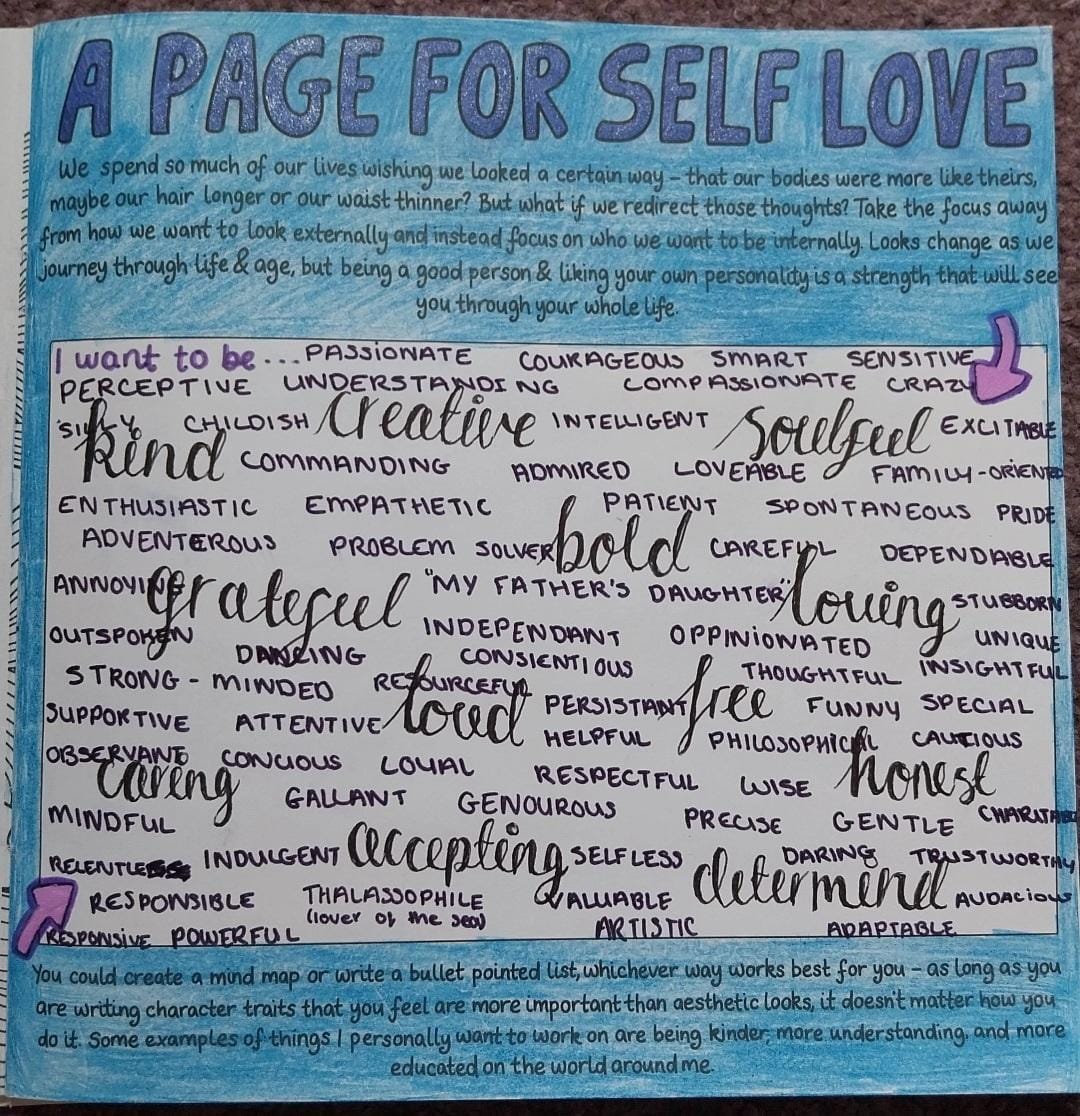 A PAGE FOR SELF LOVE
We spend so much of our lives wishing we looked a certain way – that our bodies were more like theirs,
maybe our hair longer or our waist thinner? But what if we redirect those thoughts? Take the focus away
from how we want to look externally and instead focus on who we want to be internally. Looks change as we
journey through life & age, but being a good person & liking your own personality is a strength that will see
you through your whole life.
I want to be... PASSIONATE COURAGEOUS SMART SENSITIVE
PERCEPTIVE UNDERSTANDING COMPASSIONATE CRAZY
SILLY CHILDISH creative INTELLIGENT soulful EXCITABLE
kind COMMANDING ADMIRED LOVEABLE FAMILY-ORIENTED
ENTHUSIASTIC EMPATHETIC PATIENT SPONTANEOUS PRIDE
ADVENTEROUS PROBLEM SOLVER bold CAREFUL DEPENDABLE
ANNOYING grateful "MY FATHER'S DAUGHTER" loving STUBBORN
OUTSPOKEN INDEPENDANT OPPINIONATED UNIQUE
DANCING CONSIENTIOUS THOUGHTFUL INSIGHTFUL
STRONG-MINDED RESOURCEFUL loud PERSISTANT free FUNNY SPECIAL
SUPPORTIVE ATTENTIVE HELPFUL PHILOSOPHICAL CAUTIOUS
OBSERVANT CONCIOUS LOYAL RESPECTFUL WISE honest
caring GALLANT GENOUROUS PRECISE GENTLE
MINDFUL accepting SELFLESS DARING TRUSTWORTHY
RELENTLESS INDULGENT determind
RESPONSIBLE THALASSOPHILE VALUABLE AUDACIOUS
(lover of the sea)
RESPONSIVE POWERFUL ARTISTIC ADAPTABLE
You could create a mind map or write a bullet pointed list, whichever way works best for you – as long as you
are writing character traits that you feel are more important than aesthetic looks, it doesn't matter how you
do it. Some examples of things I personally want to work on are being kinder, more understanding, and more
educated on the world around me.